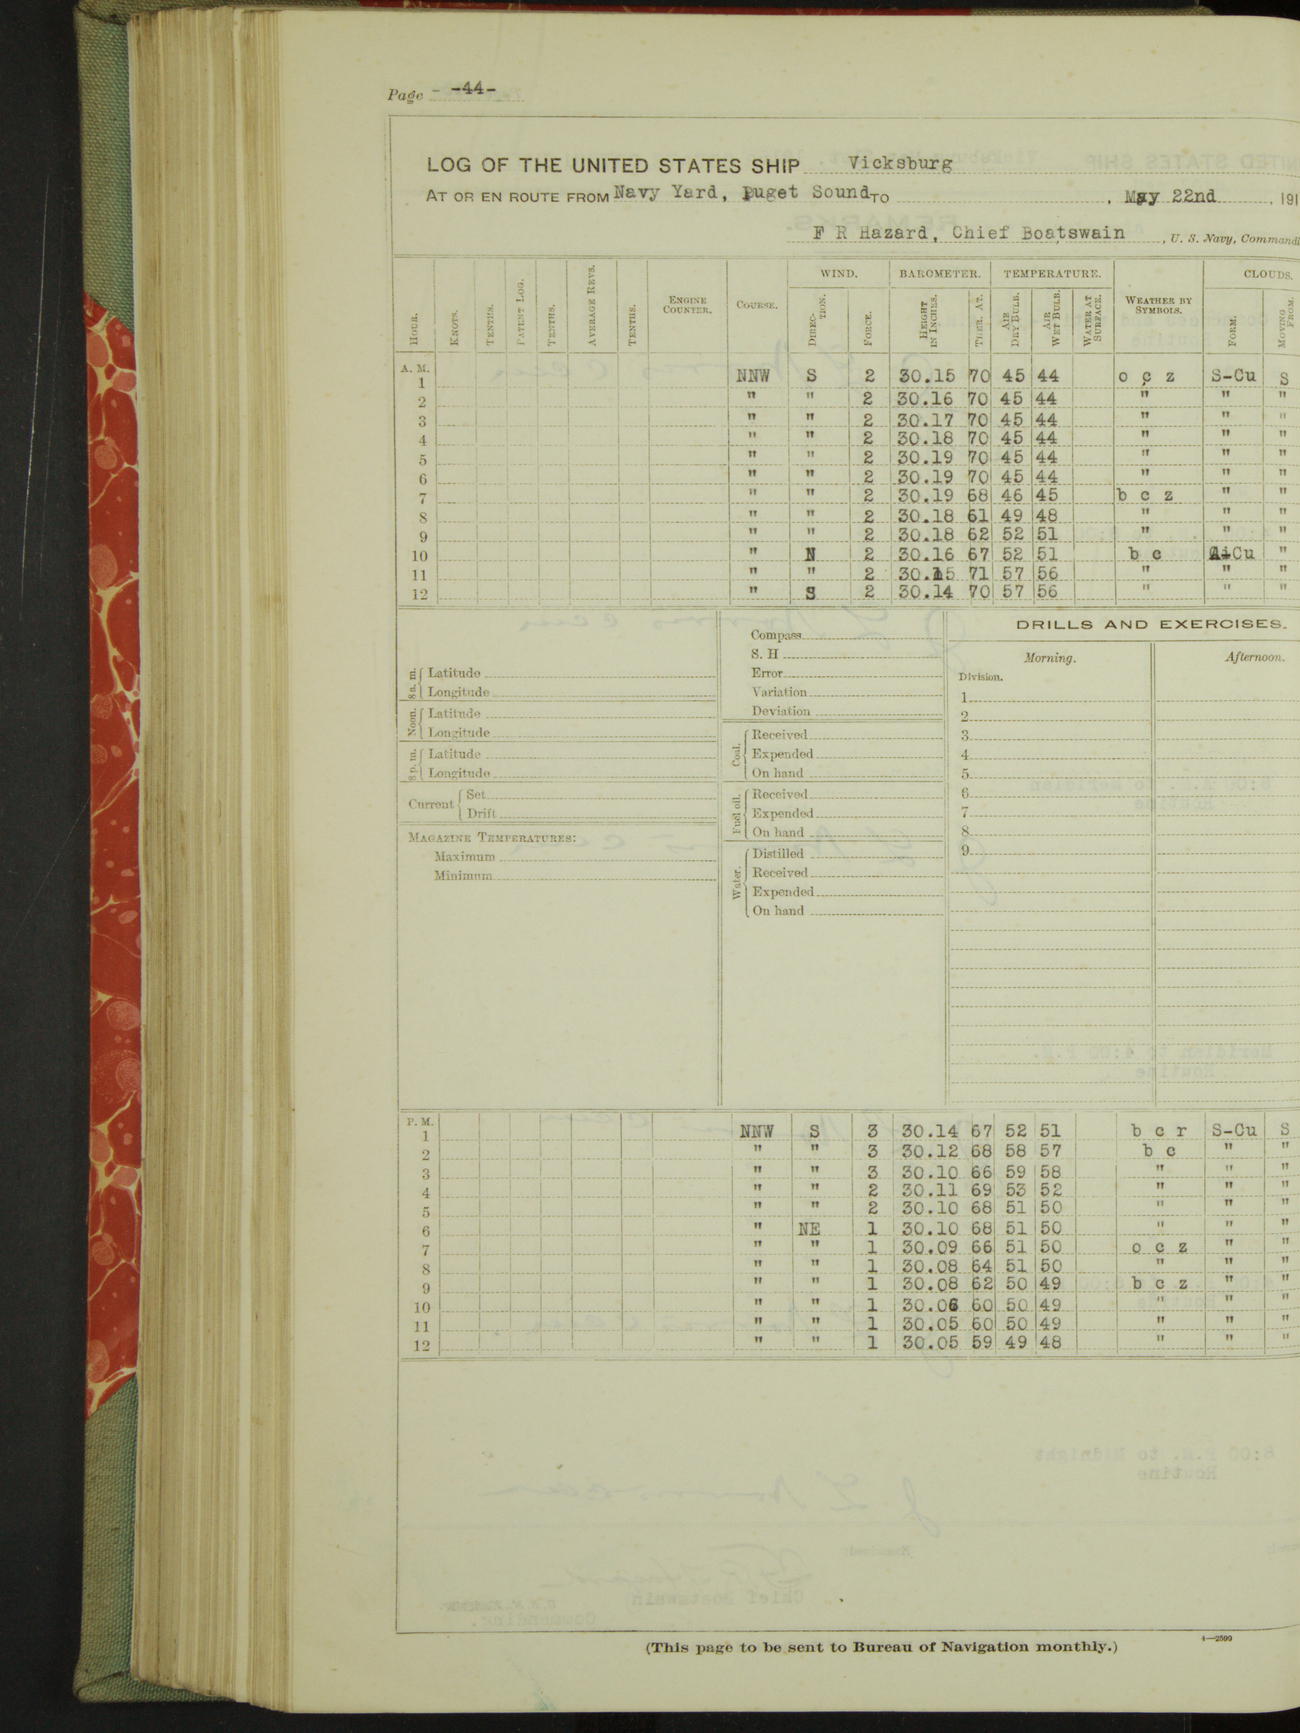 Page - -44-
LOG OF THE UNITED STATES SHIP Vicksburg
AT OR EN ROUTE FROM Navy Yard, Puget Sound TO , May 22nd , 191
F R Hazard, Chief Boatswain , U. S. Navy, Command
WIND. BAROMETER. TEMPERATURE. CLOUDS.
HOUR. KNOTS. TENTHS. PATENT LOG. TENTHS. AVERAGE REVS. TENTHS. ENGINE COUNTER. COURSE. DIREC-TION. FORCE. HEIGHT IN INCHES. THER. AT. AIR DRY BULB. AIR WET BULB. WATER AT SURFACE. WEATHER BY SYMBOLS. FORM. MOVING FROM.
A. M.
1 NNW S 2 30.15 70 45 44 o c z S-Cu S
2 " " 2 30.16 70 45 44 " " "
3 " " 2 30.17 70 45 44 " " "
4 " " 2 30.18 70 45 44 " " "
5 " " 2 30.19 70 45 44 " " "
6 " " 2 30.19 70 45 44 " " "
7 " " 2 30.19 68 46 45 b c z " "
8 " " 2 30.18 61 49 48 " " "
9 " " 2 30.18 62 52 51 " " "
10 " N 2 30.16 67 52 51 b c Cu "
11 " " 2 30.15 71 57 56 " " "
12 " S 2 30.14 70 57 56 " " "
8 a. m. Latitude
Longitude
Noon. Latitude
Longitude
8 p. m. Latitude
Longitude
Current Set
Drift
MAGAZINE TEMPERATURES:
Maximum
Minimum
Compass
S. H
Error
Variation
Deviation
Coal. Received
Expended
On hand
Fuel oil. Received
Expended
On hand
Water. Distilled
Received
Expended
On hand
DRILLS AND EXERCISES.
Morning. Afternoon.
Division.
1
2
3
4
5
6
7
8
9
P. M.
1 NNW S 3 30.14 67 52 51 b c r S-Cu S
2 " " 3 30.12 68 58 57 b c " "
3 " " 3 30.10 66 59 58 " " "
4 " " 2 30.11 69 53 52 " " "
5 " " 2 30.10 68 51 50 " " "
6 " NE 1 30.10 68 51 50 " " "
7 " " 1 30.09 66 51 50 o c z " "
8 " " 1 30.08 64 51 50 " " "
9 " " 1 30.08 62 50 49 b c z " "
10 " " 1 30.06 60 50 49 " " "
11 " " 1 30.05 60 50 49 " " "
12 " " 1 30.05 59 49 48 " " "
(This page to be sent to Bureau of Navigation monthly.)
4—2599